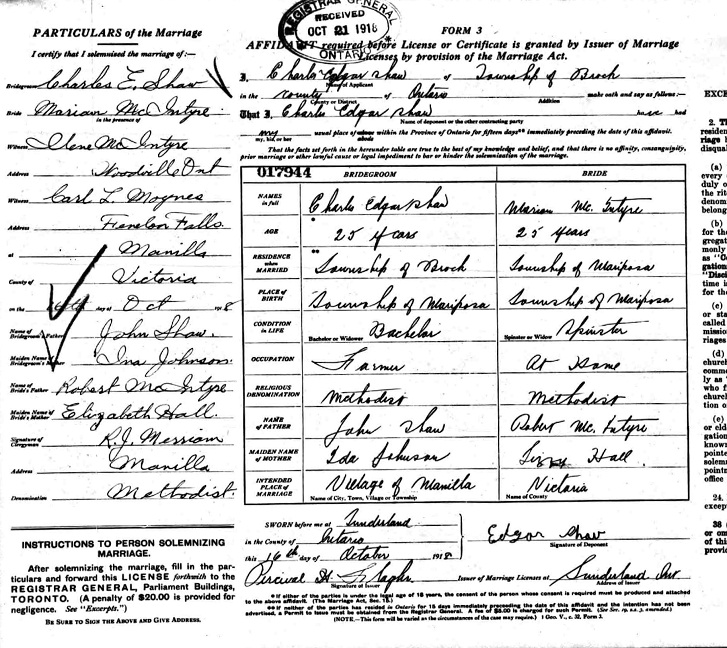 REGISTRAR GENERAL
RECEIVED
OCT 21 1918
ONTARIO
PARTICULARS of the Marriage
I certify that I solemnised the marriage of:—
Bridegroom Charles E. Shaw
Bride Mariam McIntyre
in the presence of
Witness Ilene McIntyre
Address Woodville Ont
Witness Carl L. Moynes
Address Fenelon Falls
at Manilla
County of Victoria
on the 16th day of Oct 1918
Name of Bridegroom's Father John Shaw.
Maiden Name of Bridegroom's Mother Ina Johnson.
Name of Bride's Father Robert McIntyre
Maiden Name of Bride's Mother Elizabeth Hall.
Signature of Clergyman R.J. Merriam
Address Manilla
Denomination Methodist.
INSTRUCTIONS TO PERSON SOLEMNIZING
MARRIAGE.
After solemnizing the marriage, fill in the par-
ticulars and forward this LICENSE forthwith to the
REGISTRAR GENERAL, Parliament Buildings,
TORONTO. (A penalty of $20.00 is provided for
negligence. See "Excerpts.")
BE SURE TO SIGN THE ABOVE AND GIVE ADDRESS.
FORM 3
AFFIDAVIT required before License or Certificate is granted by Issuer of Marriage
Licenses by provision of the Marriage Act.
I, Charles Edgar Shaw of Township of Brock
Name of Applicant
in the County of Ontario make oath and say as follows:—
County or District Addition
That I Charles Edgar Shaw have had
Name of deponent or the other contracting party
my usual place of abode within the Province of Ontario for fifteen days** immediately preceding the date of this affidavit.
my, his, or her
That the facts set forth in the hereunder table are true to the best of my knowledge and belief, and that there is no affinity, consanguinity,
prior marriage or other lawful cause or legal impediment to bar or hinder the solemnization of the marriage.
017944 BRIDEGROOM BRIDE
NAMES in full Charles Edgar Shaw Mariam Mc. Intyre
AGE * 25 years 25 years
RESIDENCE when MARRIED ** Township of Brock Township of Mariposa
PLACE OF BIRTH Township of Mariposa Township of Mariposa
CONDITION in LIFE Bachelor or Widower Bachelor Spinster or Widow Spinster
OCCUPATION Farmer At Home
RELIGIOUS DENOMINATION Methodist Methodist
NAME OF FATHER John Shaw Robert Mc. Intyre
MAIDEN NAME OF MOTHER Ida Johnson Hall
INTENDED PLACE OF MARRIAGE Village of Manilla Victoria
Name of City, Town, Village or Township Name of County
SWORN before me at Sunderland
in the County of Ontario
this 16th day of October 1918
Edgar Shaw
Signature of Deponent
Percival H.
Signature of Issuer
Issuer of Marriage Licenses at Sunderland Ont.
Address of Issuer
* If either of the parties is under the legal age of 18 years, the consent of the person whose consent is required must be produced and attached
to the above affidavit. (The Marriage Act, Sec. 15.)
** If neither of the parties has resided in Ontario for 15 days immediately preceding the date of this affidavit and the intention has not been
advertised, a Permit to Issue must be obtained from the Registrar General. A fee of $5.00 is charged for such Permit.
(NOTE.—This form will be varied as the circumstances of the case may require.) 1 Geo. V., c. 32, Form 3.